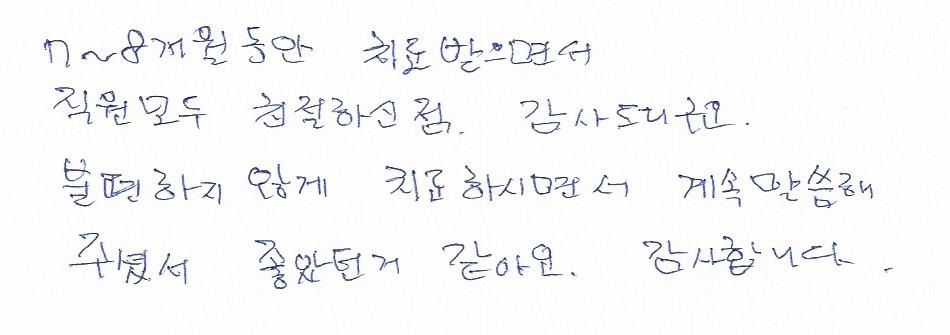 7~8개월동안 치료받으면서
직원모두 친절하신점. 감사드리구요.
불편하지 않게 치료하시면서 계속말씀해
주셨서 좋았던거 같아요. 감사합니다.